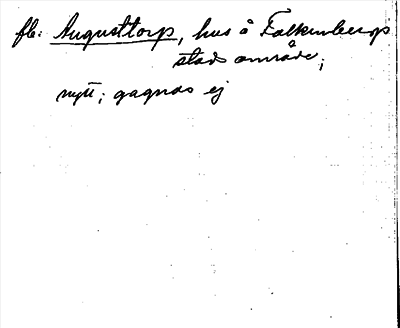 fb: Augusttorp, hus å Falkenbergs
stads område;
nytt; gagnas ej